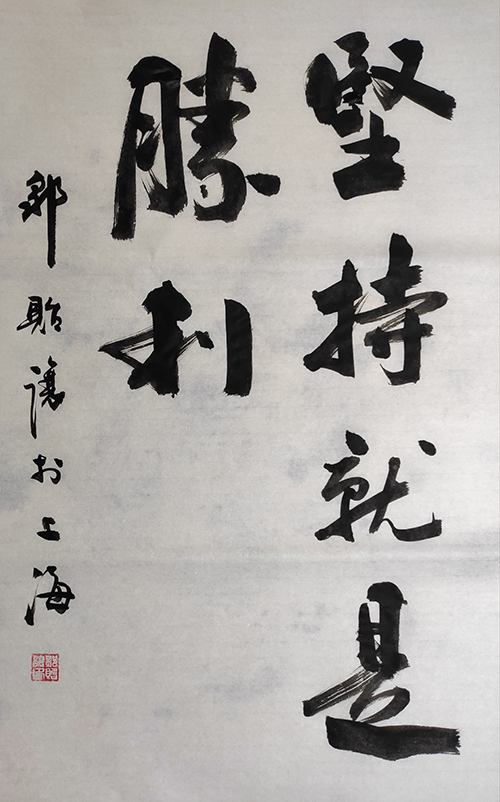 堅持就是
勝利
鄒貽讓於上海